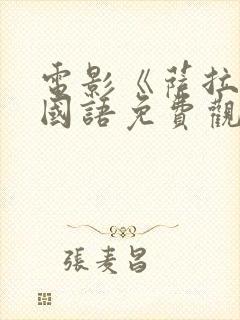 電影《薩拉
國語免費觀
張麦昌